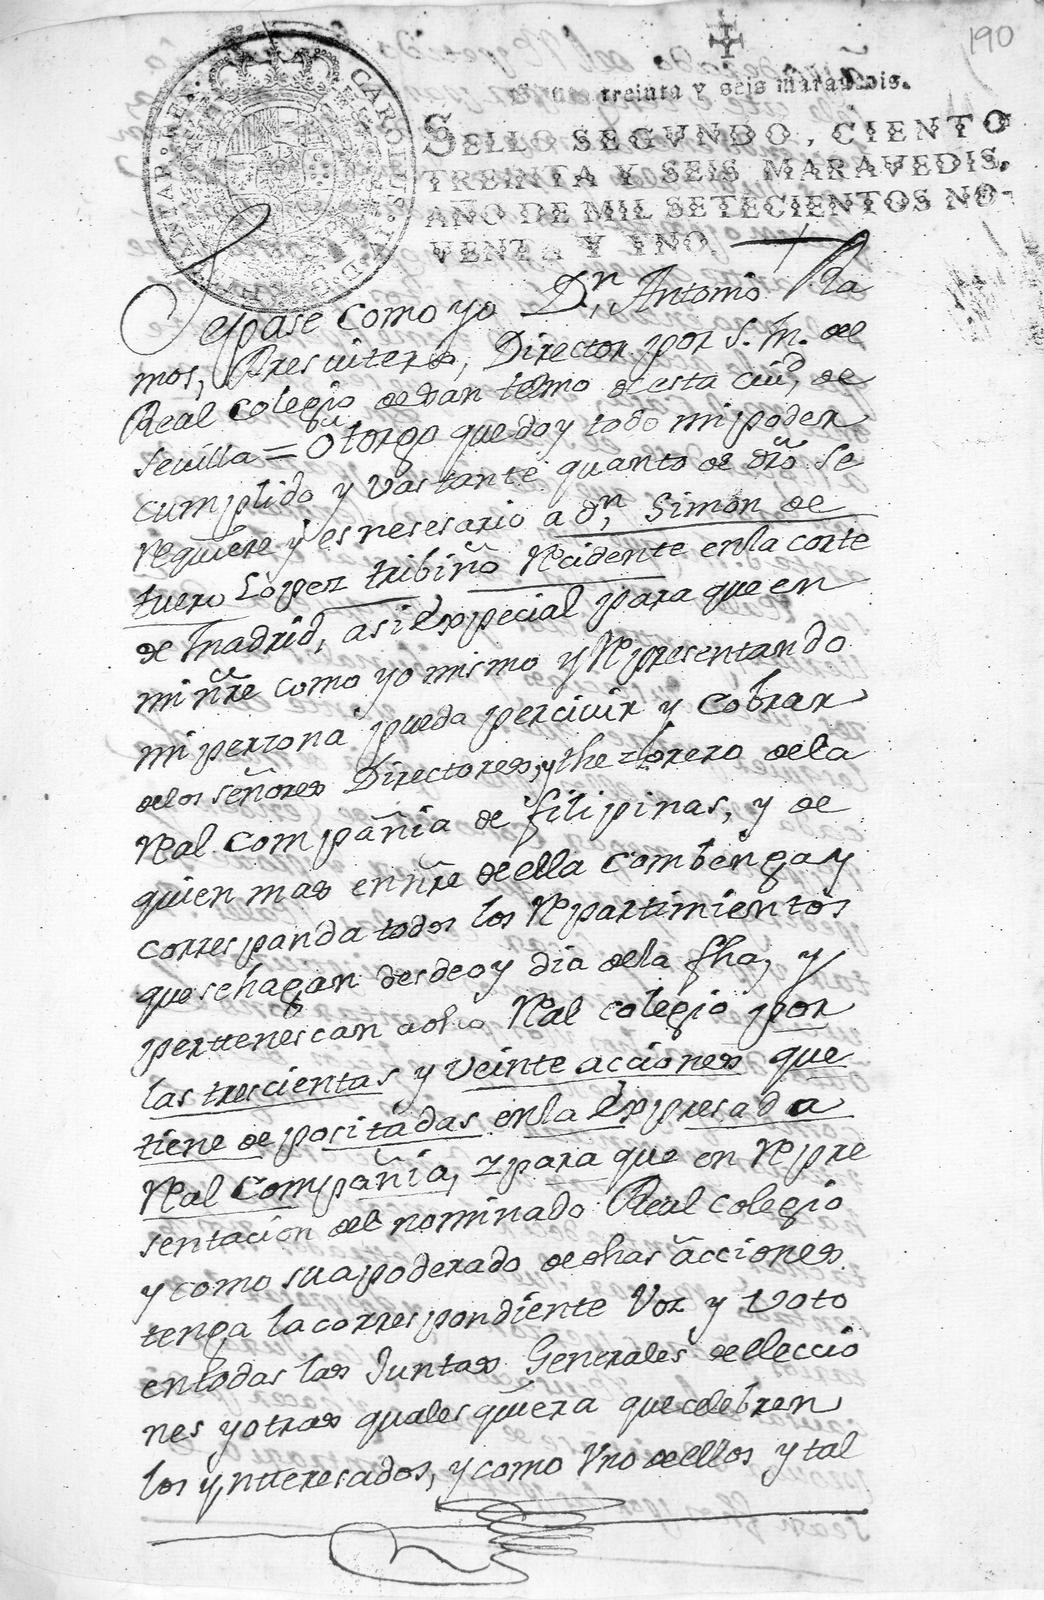 190
treinta y seis maravedis.
SELLO SEGVNDO, CIENTO
TREINTA Y SEIS MARAVEDIS,
AÑO DE MIL SETECIENTOS NO-
VENTA Y VNO.
CAROLUS
Sepase como yo Dn, Antonio Ra
mos, Presvitero, Director por S. M. del
Real Colegio de San telmo de esta Ciud, de
Sevilla = Otorgo que doy todo mi poder
cumplido y vastante quanto de dro se
requiere y es nesesario a dn, Simon de
tuero Lopez tribiño Recidente en la corte
de Madrid, asi Expecial para que en
mi nre como yo mismo y Representando
mi perzona pueda percivir y cobrar
de los señores Directores, y thezorero de la
Real Compañia de filipinas, y de
quien mas en nre de ella Combenga y
correspanda todos los Repartimientos
que se hagan desde oy dia de la fha, y
pertenescan a dho Real Colegio por
las trescientas y Veinte acciones que
tiene depocitadas en la Expresada
Real Compañia, y para que en Repre
sentacion del nominado Real Colegio
y como su apoderado de dhas acciones
tenga la correspondiente Voz y Voto
en todas las Juntas Generales de Eleccio
nes y otras qualesquiera que celebren
los ynteresados, y como Vno de ellos y tal